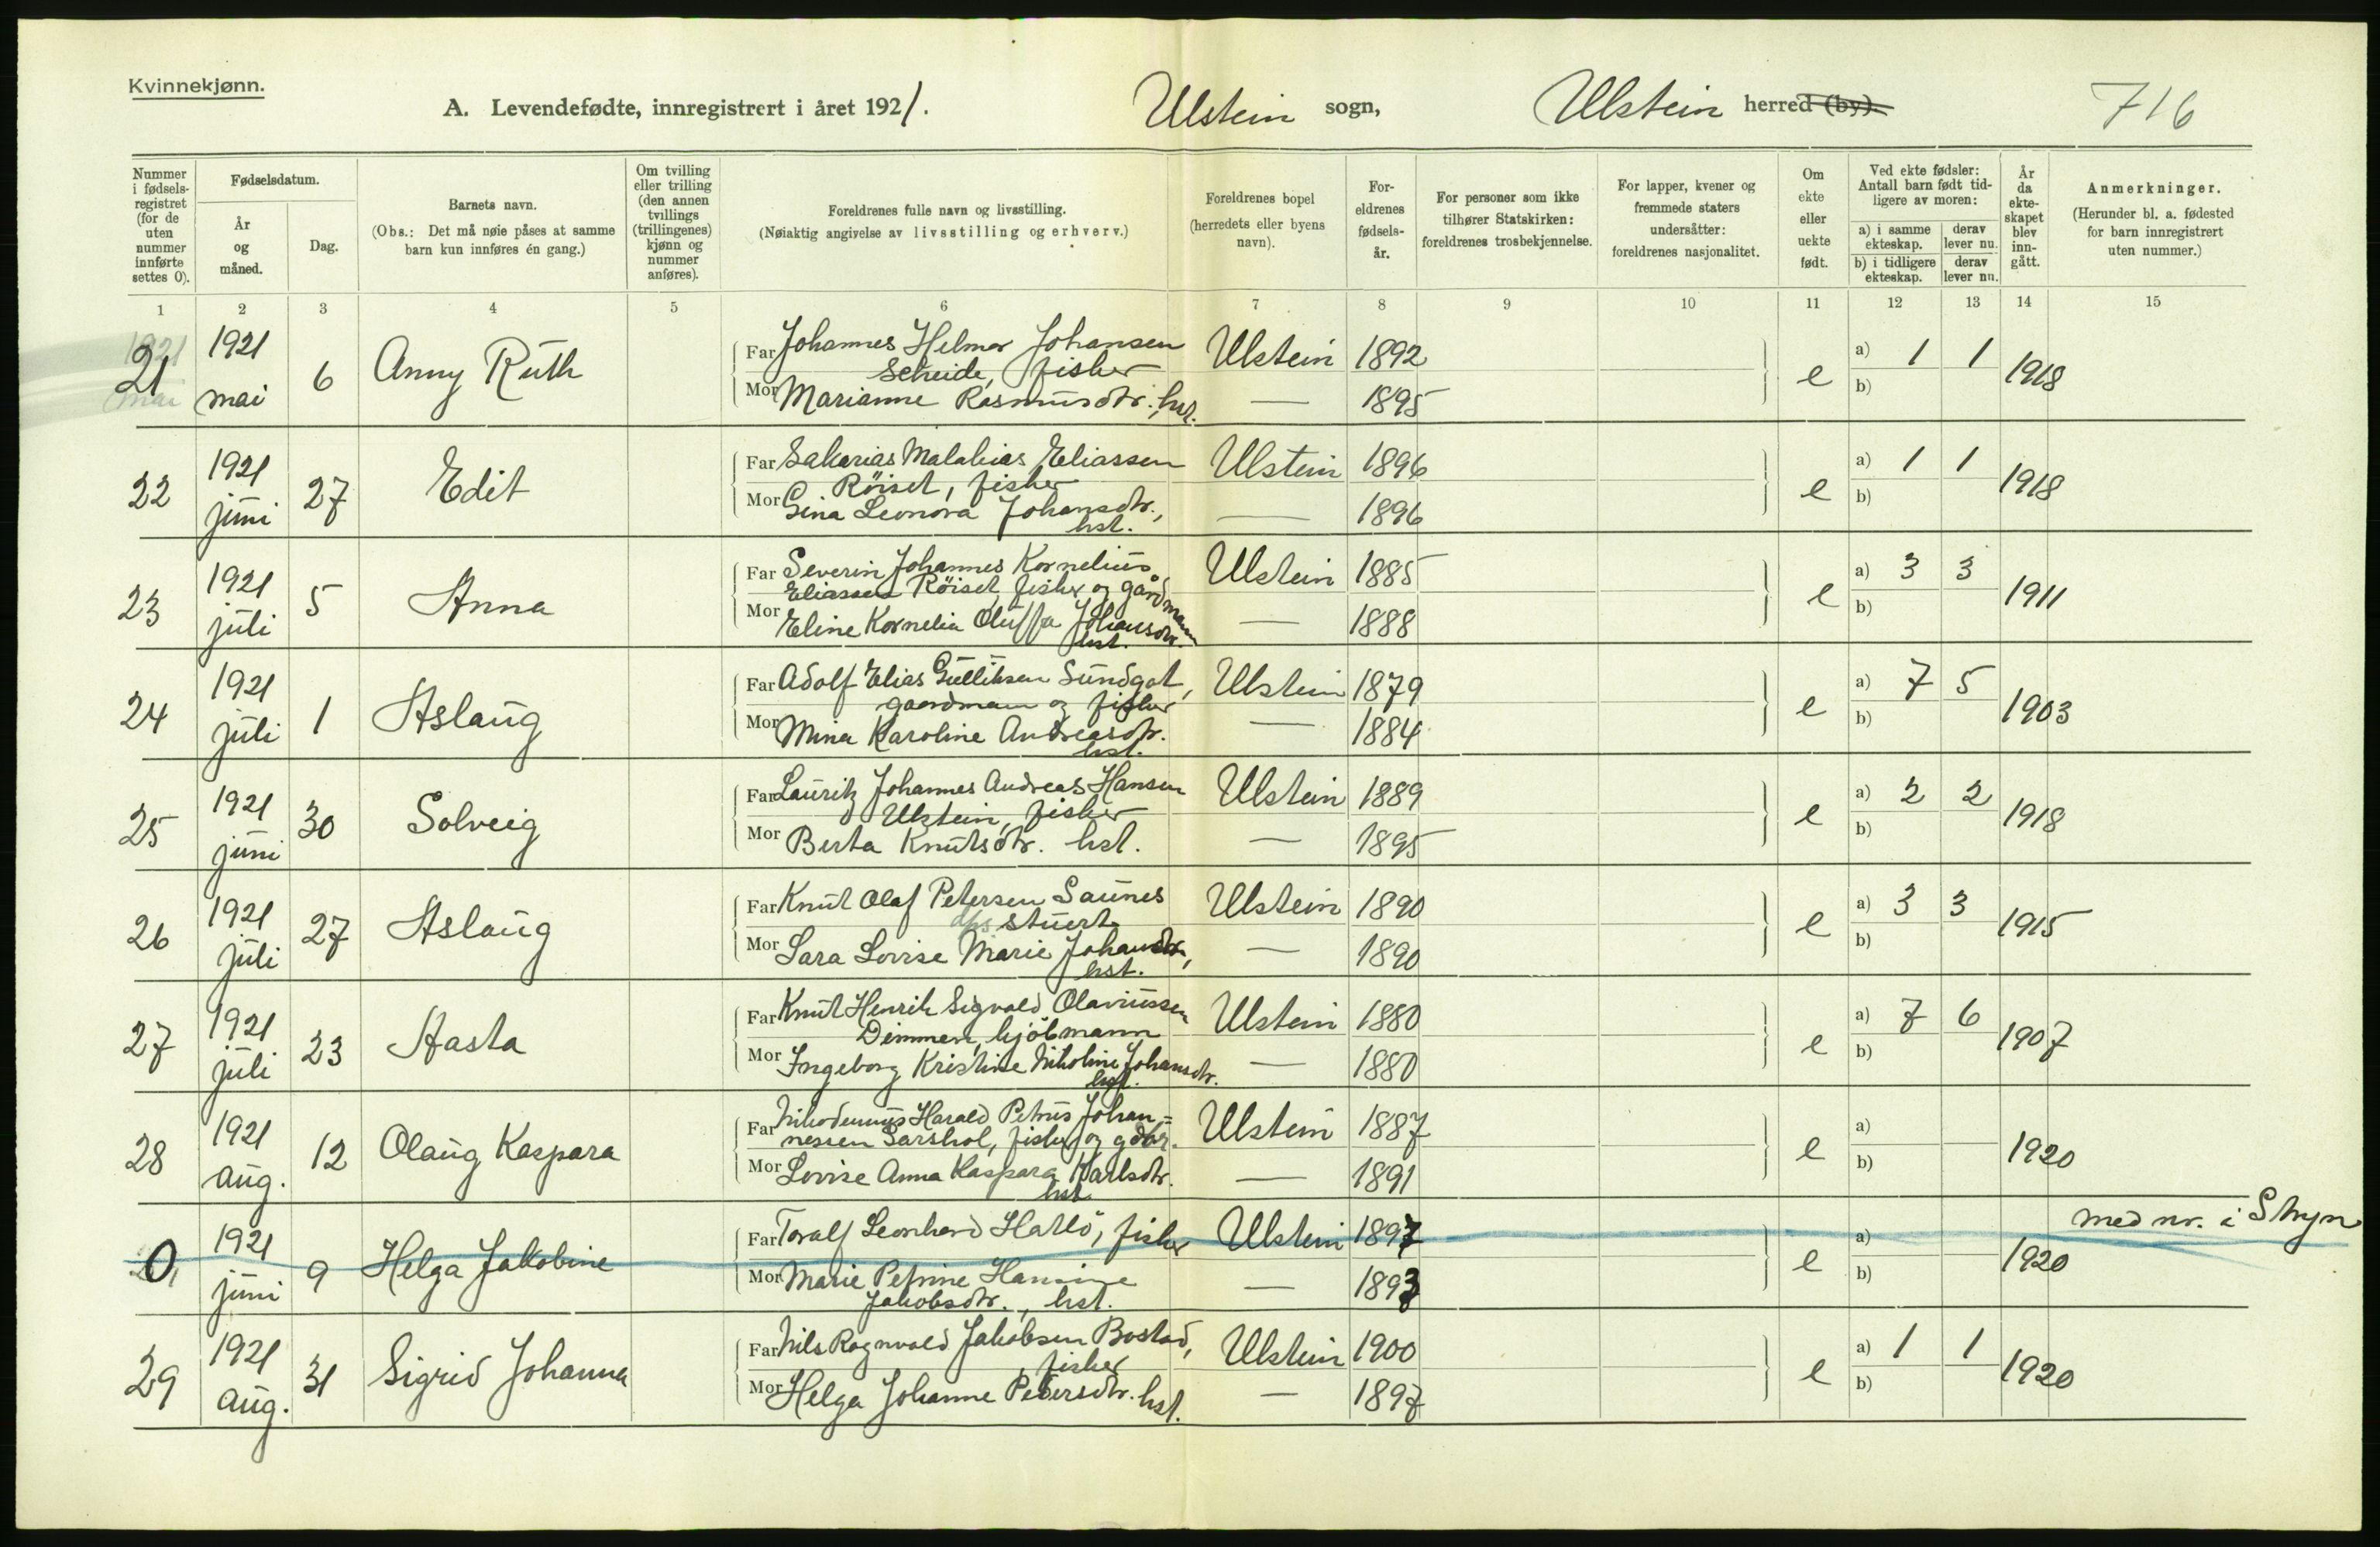 Kvinnekjønn.
A. Levendefødte, innregistrert i året 1921.
Ulstein sogn,
Ulstein herred (by).
716
Nummer i fødsels-registret (for de uten nummer innførte settes 0).
Fødselsdatum.
År og måned.
Dag.
Barnets navn.
(Obs.: Det må nøie påses at samme barn kun innføres én gang.)
Om tvilling eller trilling (den annen tvillings (trillingenes) kjønn og nummer anføres).
Foreldrenes fulle navn og livsstilling.
(Nøiaktig angivelse av livsstilling og erhverv.)
Foreldrenes bopel (herredets eller byens navn).
For-eldrenes fødsels-år.
For personer som ikke tilhører Statskirken: foreldrenes trosbekjennelse.
For lapper, kvener og fremmede staters undersåtter: foreldrenes nasjonalitet.
Om ekte eller uekte født.
Ved ekte fødsler: Antall barn født tid-ligere av moren:
a) i samme ekteskap.
derav lever nu.
b) i tidligere ekteskap.
derav lever nu.
År da ekte-skapet blev inn-gått.
Anmerkninger.
(Herunder bl. a. fødested for barn innregistrert uten nummer.)
1 2 3 4 5 6 7 8 9 10 11 12 13 14 15
21 1921 mai 6 Anny Ruth
Far Johannes Helmer Johansen Ulstein 1892
Scheide, fisker
Mor Marianne Rasmusdtr. hst. — 1895
e a) 1 1 b) 1918
22 1921 juni 27 Edit
Far Sakarias Malakias Eliassen Ulstein 1896
Röiset, fisker
Mor Gina Leonora Johansdtr., hst. — 1896
e a) 1 1 b) 1918
23 1921 juli 5 Anna
Far Severin Johannes Kornelius Ulstein 1885
Eliassen Röiset, fisker og gårdmann
Mor Eline Kornelia Oluffa Johansdtr. hst. — 1888
e a) 3 3 b) 1911
24 1921 juli 1 Aslaug
Far Adolf Elias Gulliksen Sundgot, Ulstein 1879
gaardmann og fisker
Mor Mina Karoline Andreasdtr. hst. — 1884
e a) 7 5 b) 1903
25 1921 juni 30 Solveig
Far Lauritz Johannes Andreas Hansen Ulstein 1889
Ulstein, fisker
Mor Berta Knutsdtr. hst. — 1895
e a) 2 2 b) 1918
26 1921 juli 27 Aslaug
Far Knut Olaf Petersen Saunes Ulstein 1890
dps stuert
Mor Lara Lovise Marie Johansdtr., hst. — 1890
e a) 3 3 b) 1915
27 1921 juli 23 Aasta
Far Knut Henrik Sigvald Olaviussen Ulstein 1880
Dimmen, kjöbmann
Mor Ingeborg Kristine Nikoline Johansdtr. hst. — 1880
e a) 7 6 b) 1907
28 1921 aug. 12 Olaug Kaspara
Far Nikodemus Harald Petrus Johan- Ulstein 1887
nessen Garshol, fisker og gdbr.
Mor Lovise Anna Kaspara Karlsdtr. hst. — 1891
e a) b) 1920
0 1921 juni 9 Helga Jakobine
Far Toralf Leonhard Hatlö, fisker Ulstein 1897
Mor Marie Petrine Hansine — 1893
Jakobsdtr., hst.
e a) b) 1920 med nr. i Stryn
29 1921 aug. 31 Sigrid Johanna
Far Nils Ragnvald Jakobsen Bostad, Ulstein 1900
fisker
Mor Helga Johanne Pedersdtr. hst. — 1897
e a) 1 1 b) 1920